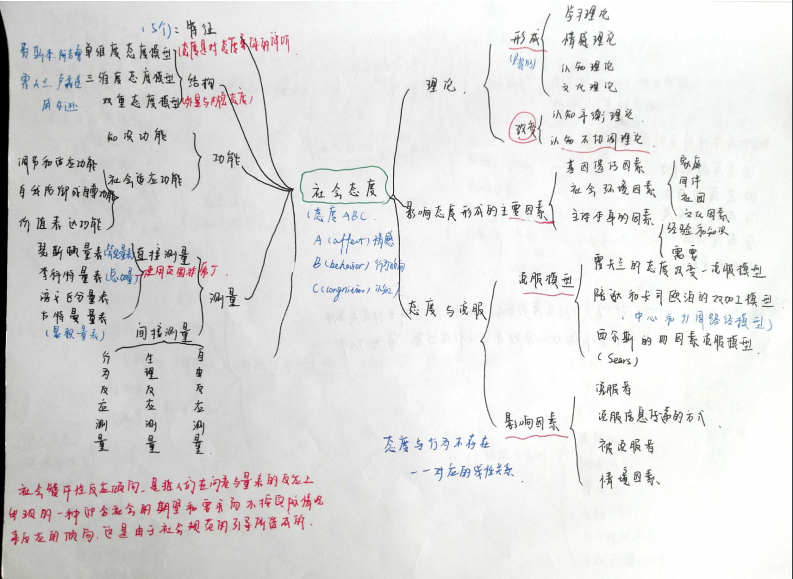 (5个): 特征
单维度态度模型(态度是对态度
三维度态度模型
双重态度模型(外显与内隐态度)
结构
知识功能
社会适应功能
调节和适应功能
自我防御
价值表达功能
功能
瑟斯顿量表
李克特量表
语义
古特曼量表
直接测量
使用范围
测量
间接测量
行为反应测量
生理反应测量
自由反应测量
社会态度
(态度ABC.
A (affect) 情感
B (behavior) 行为
C (congnition) 认知)
理论.
形成
学习理论
情感理论
认知理论
文化理论
改变
认知平衡理论.
认知不协调理论.
影响态度形成的主要因素
基因遗传因素
社会环境因素
家庭
同伴
社团
文化因素
主体本身的因素
经验和知识
需要
态度与说服
说服模型
霍夫兰的态度改变-说服模型
陪蒂和卡司欧泊的双加工模型
(中心和外周路径模型)
西尔斯的四因素说服模型.
(Sears)
影响因素
说服者
说服信息传递的方式.
被说服者
情境因素.
态度与行为不存在
一一对应的线性关系.
社会赞许性反应倾向,是指人们在问卷与量表的反应上
出现的一种迎合社会的期望和要求而不按实际情况
来反应的倾向.这是由于社会规范的引导所造成的.